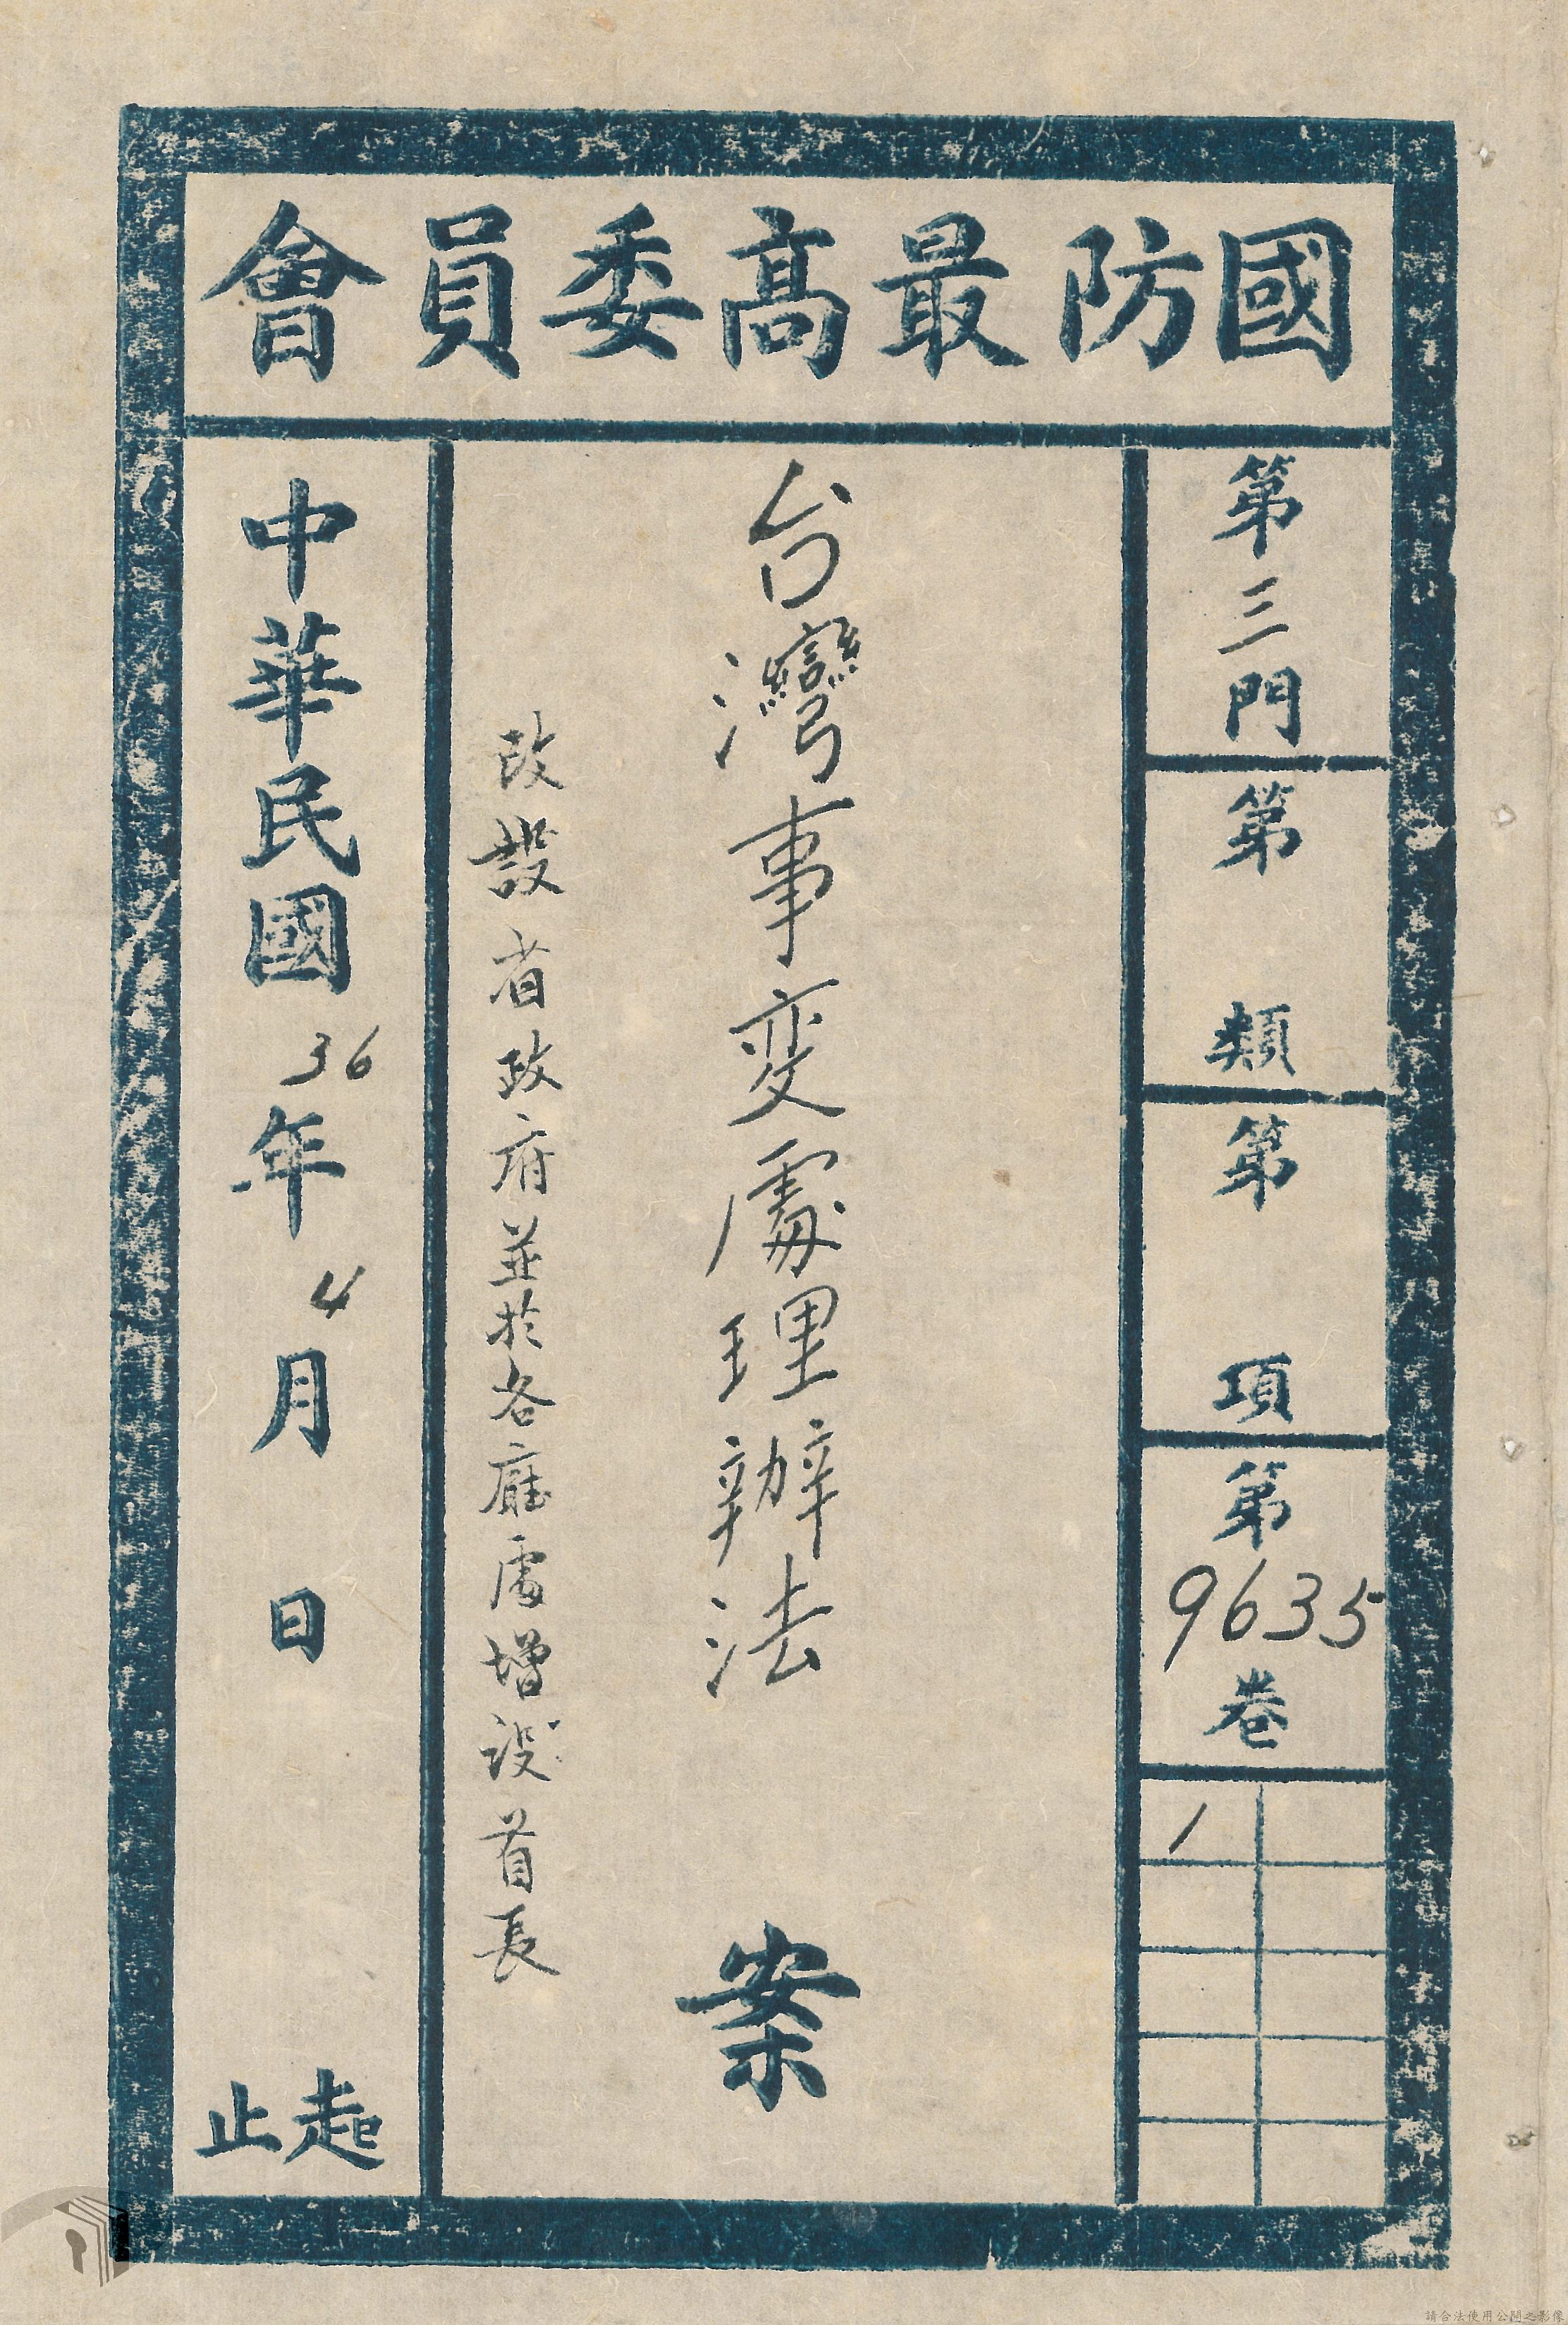 國防最高委員會
第三門
第 類
第 項
第9635卷
1
台灣事変處理辦法 案
改設省政府並於各廳處增設首長
中華民國36年4月 日
起止
請合法使用公開之影像